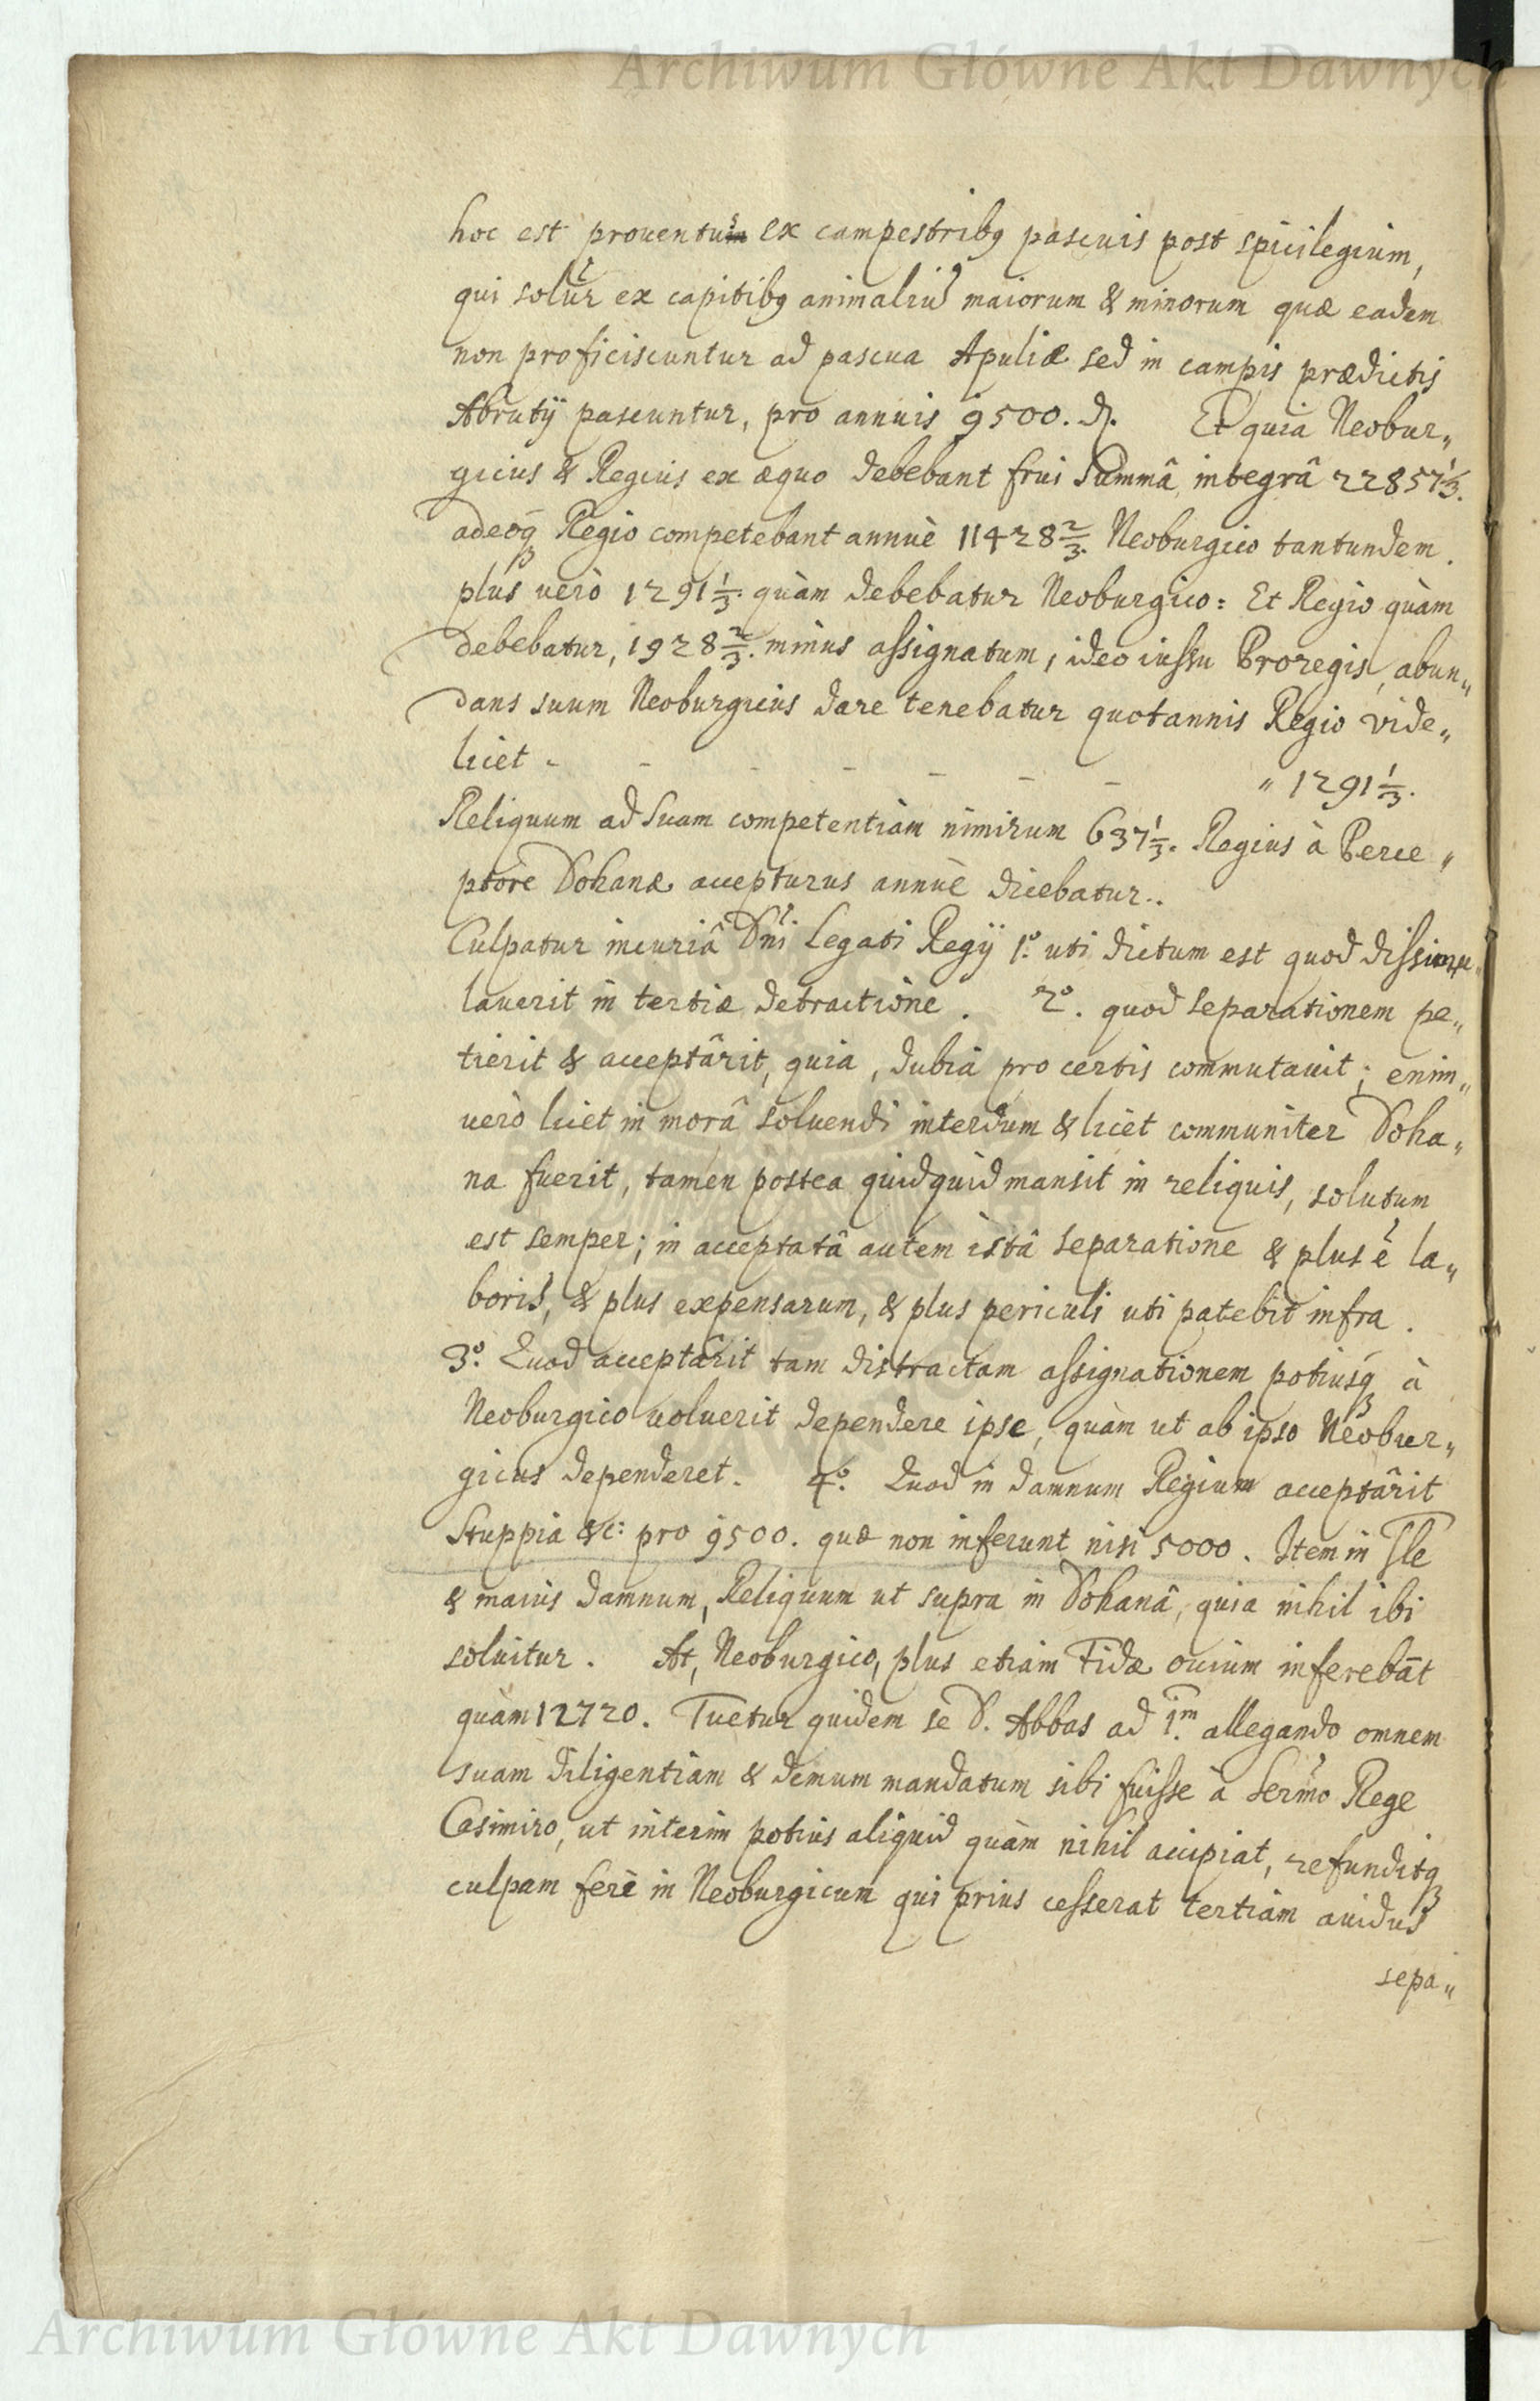 Archiwum Główne Akt Dawnych
hoc est prouentus ex campestribq pascuis post spicilegium,
qui solur̃ ex capitibq animaliũ maiorum & minorum quæ eadem
non proficiscuntur ad pascua Apuliæ sed in campis prædictis
Abrutÿ pascuntur, pro annuis 9500. d. Et quia Neobur„
gicus & Regius ex æquo debebant frui Summâ integrâ 22857⅓.
adeoq Regio competebant annuè 11428⅔. Neoburgico tantundem.
plus uerò 1291⅓. quàm debebatur Neoburgico: Et Regio quàm
debebatur, 1928⅔. minus assignatum, ideo iussu Proregis, abun„
dans suum Neoburgicus dare tenebatur quotannis Regio vide„
licet - - - - - - - „ 1291⅓.
Reliquum ad suam competentiam nimirum 637⅓. Regius à Perce„
ptore Dohanæ accepturus annuè dicebatur..
Culpatur incuriâ Dñi Legati Regÿ 1º. uti dictum est quod dissimu„
lauerit in tertiæ detractione. 2º. quod separationem pe„
tierit & acceptârit, quia, dubia pro certis commutauit; enim„
uerò licet in morâ soluendi interdum & licet communiter Doha„
na fuerit, tamen postea quidquid mansit in reliquis, solutum
est semper; in acceptatâ autem istâ separatione & plus ẽ la„
boris, & plus expensarum, & plus periculi uti patebit infra.
3º. Quod acceptârit tam distractam assignationem potiusq à
Neoburgico uoluerit dependere ipse, quàm ut ab ipso Neobur„
gicus dependeret. 4º. Quod in damnum Regium acceptârit
Stuppia &c: pro 9500. quæ non inferunt nisi 5000. Item in Sle
& maius damnum, Reliquum ut supra in Dohanâ, quia nihil ibi
soluitur. At, Neoburgico, plus etiam Fidæ ouium inferebãt
quàm 12720. Tuetur quidem se D. Abbas ad 1.m allegando omnem
suam diligentiam & demum mandatum sibi fuisse à Serm̃o Rege
Casimiro, ut interim potius aliquid quàm nihil accipiat, refunditq
culpam ferè in Neoburgicum qui prius cesserat tertiam auidus
sepa„
Archiwum Główne Akt Dawnych